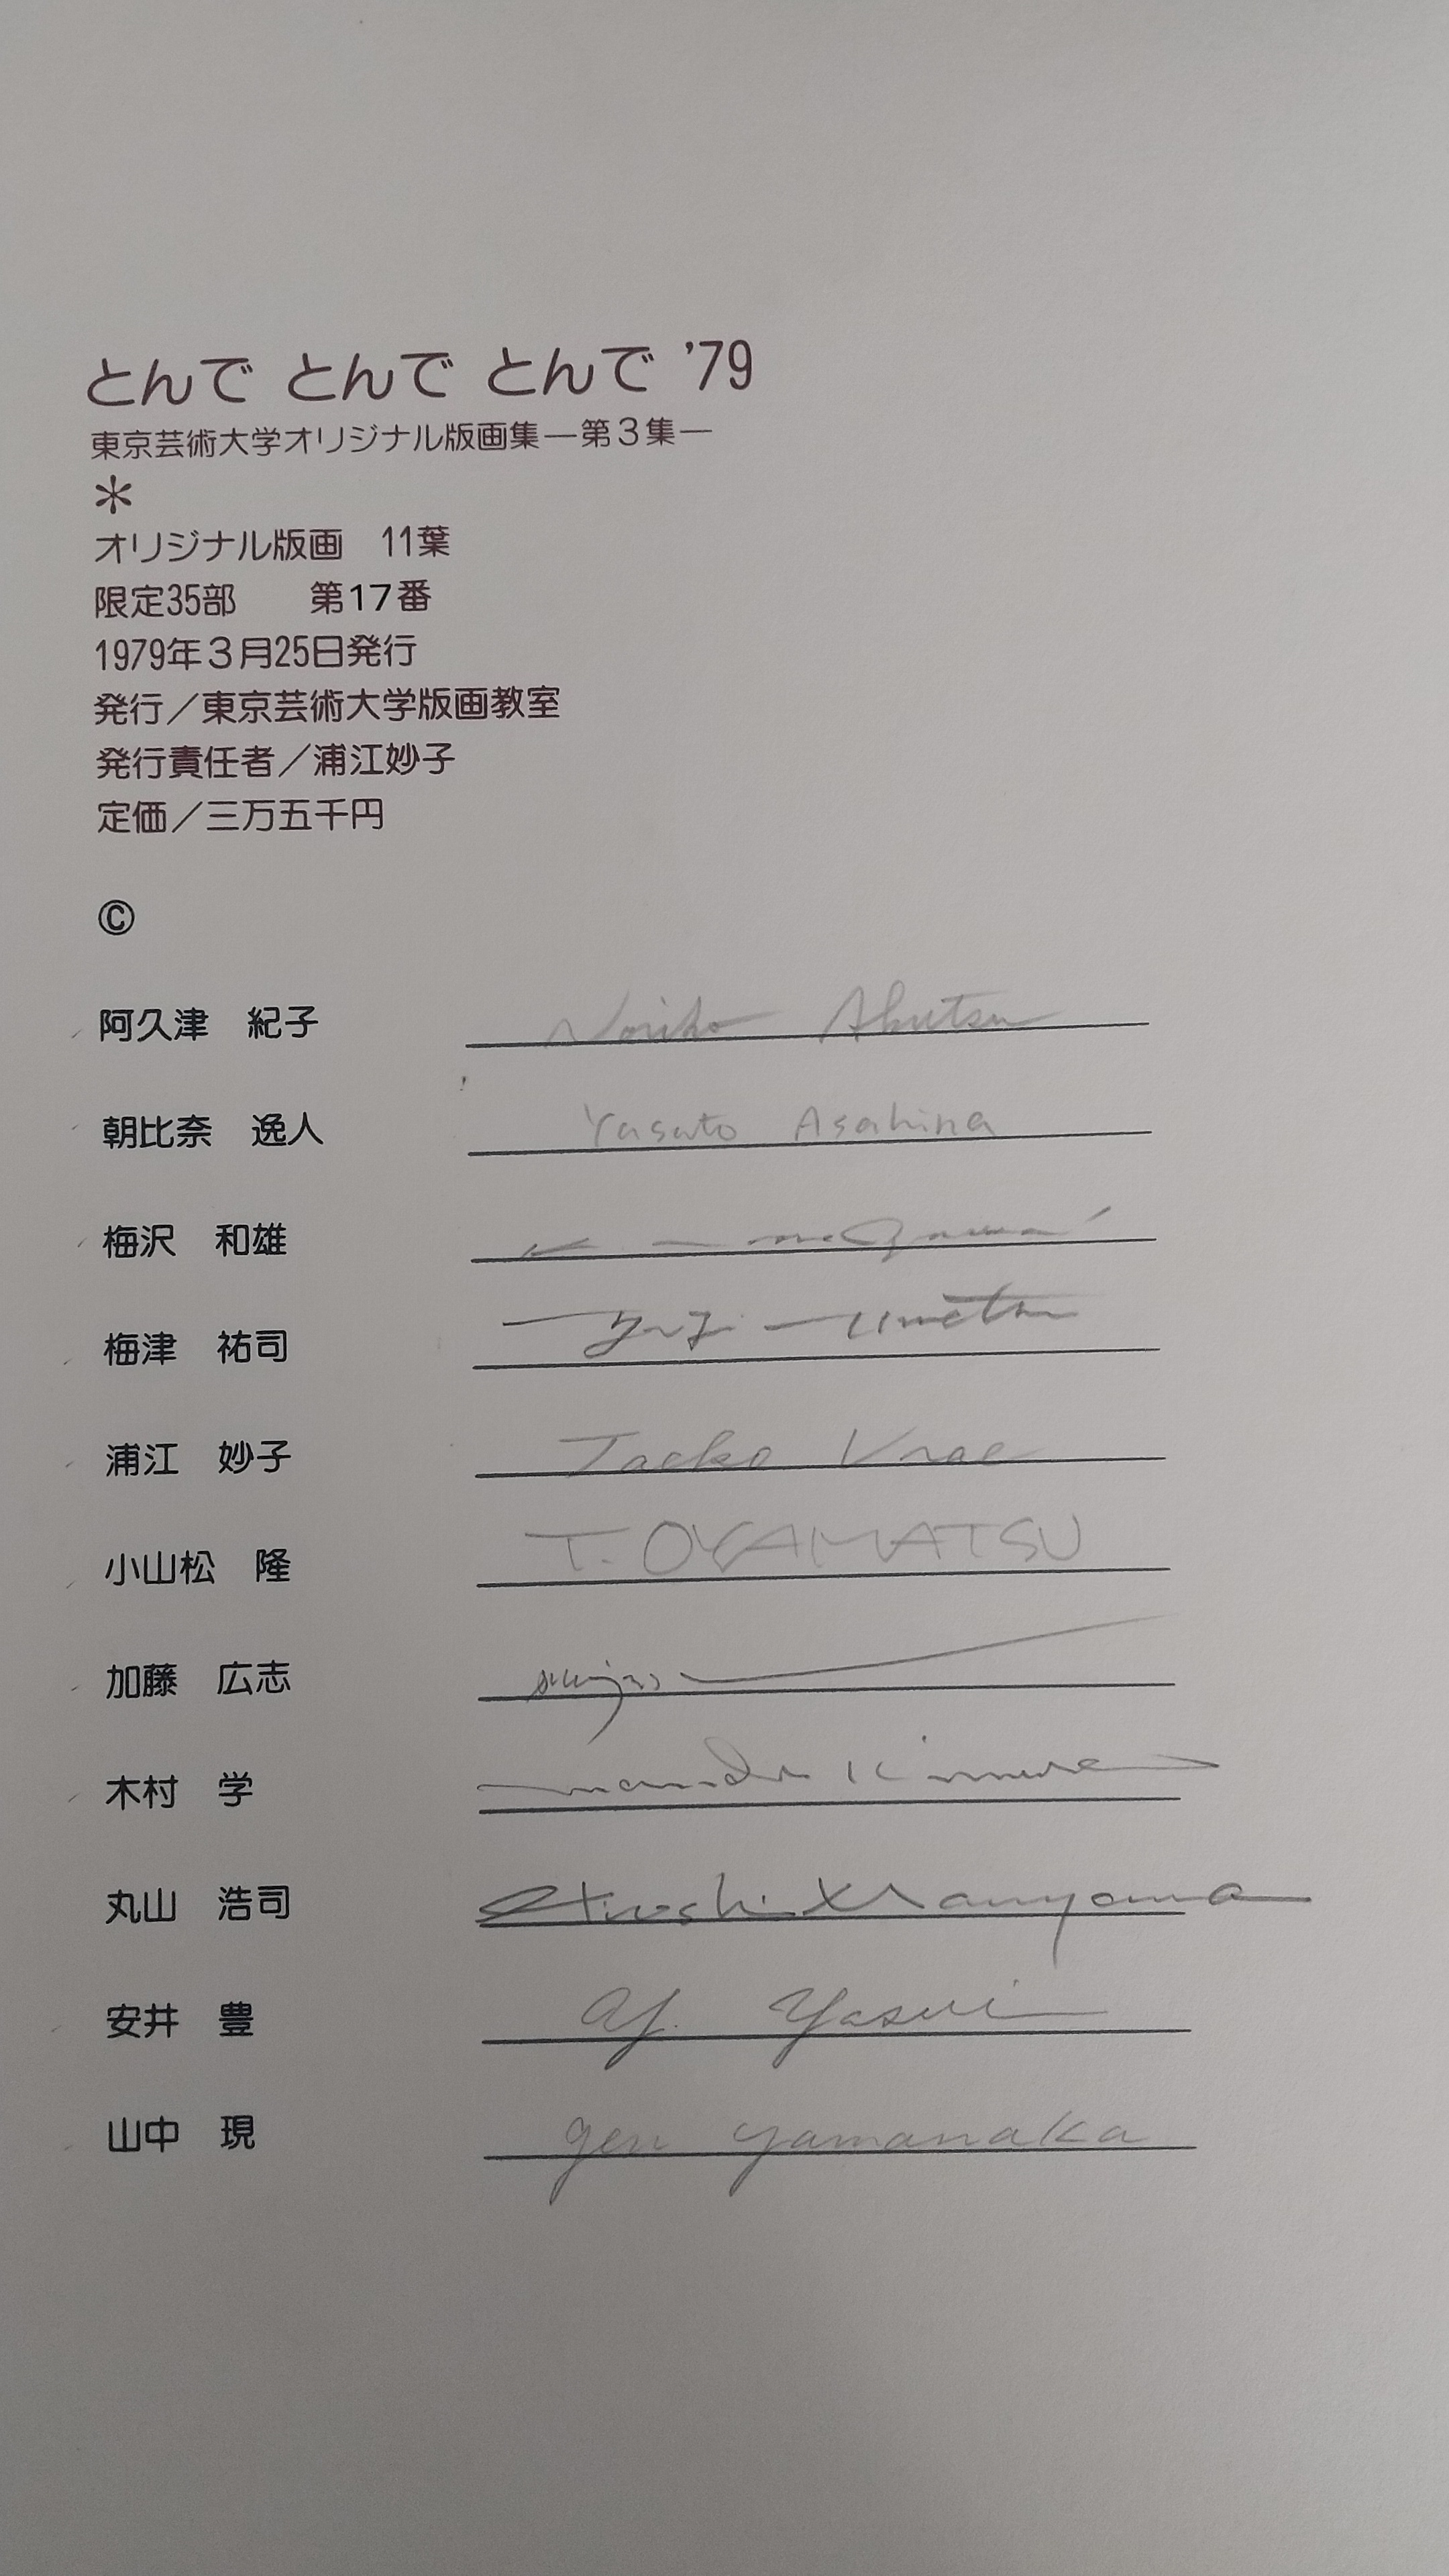 とんで とんで とんで ’79
東京芸術大学オリジナル版画集―第3集―
＊
オリジナル版画　11葉
限定35部　　第17番
1979年3月25日発行
発行／東京芸術大学版画教室
発行責任者／浦江妙子
定価／三万五千円
©
阿久津　紀子　Noriko Akutsu
朝比奈　逸人　Yasuto Asahina
梅沢　和雄
梅津　祐司　Yuji Umetsu
浦江　妙子　Taeko Urae
小山松　隆　T. OYAMATSU
加藤　広志
木村　学　Kimura
丸山　浩司　Hiroshi Maruyama
安井　豊　Y. Yasui
山中　現　gen yamanaka